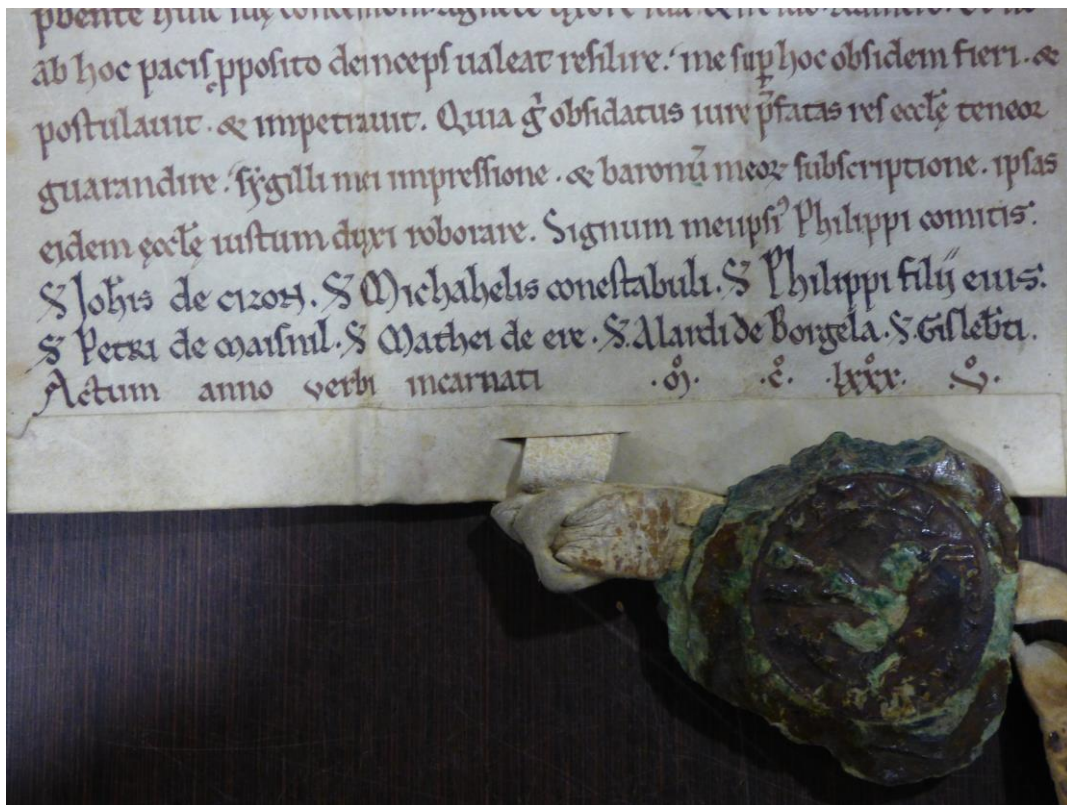 ab hoc pacis ꝓposito deinceps ualeat resilire. me suꝑ hoc obsidem fieri. &
postulauit. & impetrauit. Quia g̊ obsidatus iure p̄fatas res ecclę̄ teneor
guarandire. sẏgilli mei impressione. & baronū meoꝝ subscriptione. ipsas
eidem ęcclę̄ iustum duxi roborare. Signum meiipsiꝰ Philippi comitis.
S Joh̄is de cizon. S Michahelis conestabuli. S Philippi filij eius.
S Petri de maisnil. S Mathei de ere. S. Alardi de Borgela. S. Gisleb̄ti.
Actum anno verbi incarnati .m̊. .c̊. .lxxx̊. .v̊.